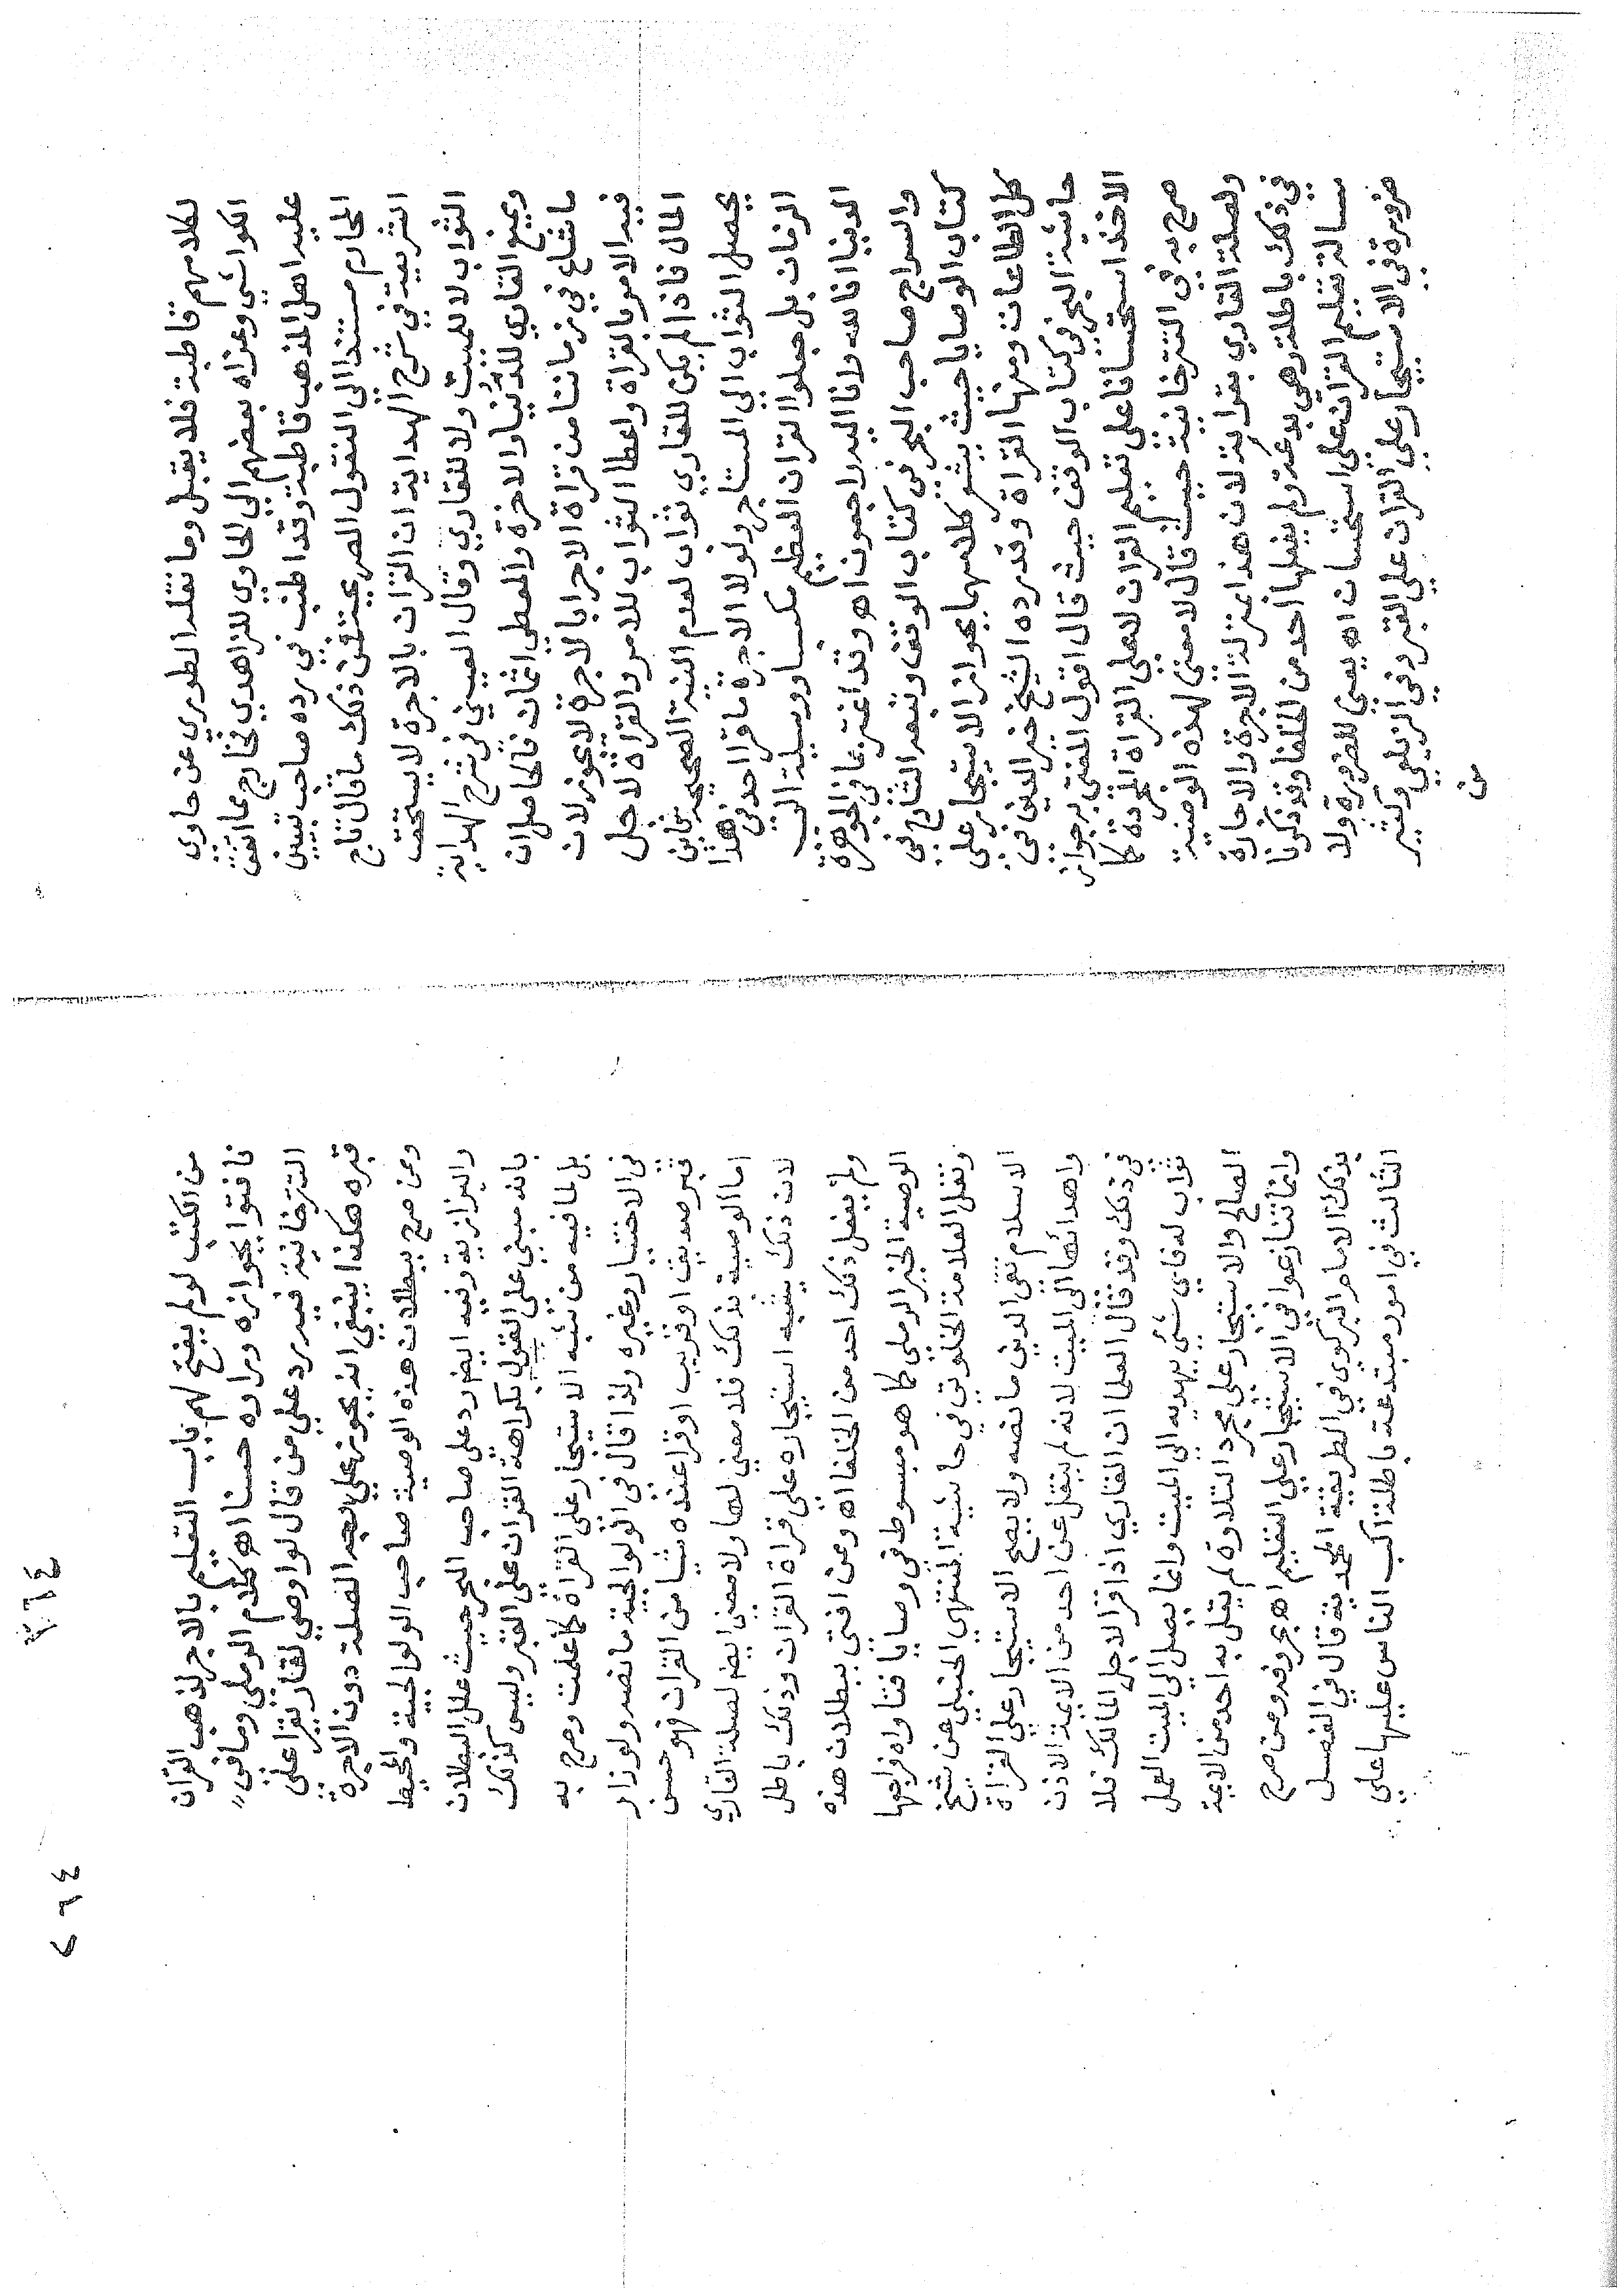 لكلامهم قاطبة فلا يقبل وما نقله الطوري عن حاوي
الكواشي وعزاه بعضهم الى الحاوي للزاهدي فخارج عما اتفق
عليه اهل المذهب قاطبة وقد اطنب في رده صاحب تبيين
المحارم مستندا الى النقول الصريحة فمن ذلك ما قال تاج
الشريعة في شرح الهداية ان القران بالاجرة لا يستحق
الثواب لا للميت ولا للقاري وقال العيني في شرح الهداية
ويمنع القاري للدنيا والاخذ والمعطي اثمان فالحاصل ان
ما شاع في زماننا من قراة الاجزا بالاجرة لا يجوز لان
فيه الامر بالقراة واعطا الثواب للامر والقراة لاجل
المال فاذا لم يكن للقاري ثواب لعدم النية الصحيحة فاين
يصل الثواب الى المستاجر ولولا الاجرة ما قرا احد في هذا
الزمان بل جعلوا القران العظيم مكسبا ووسيلة الى جمع
الدنيا انا لله وانا اليه راجعون اه وقد اغتر بما في الجوهرة
والسراج صاحب البحر في كتاب الوقف وتبعه الشارح في
كتاب الوصايا حيث يشعر كلامهما بجواز الاستيجار على
كل الطاعات ومنها القراة وقد رده الشيخ خير الدين في
حاشية البحر في كتاب الوقف حيث قال اقول المفتى به جواز
الاخذ استحسانا على تعليم القران لا على القراة المجردة كما
صرح به في التترخانية حيث قال لا معنى لهذه الوصية
ولصلة القاري بقراته لان هذا بمنزلة الاجرة والاجارة
في ذلك باطلة وهي بدعة ولم يفعلها احد من الخلفا وقد ذكرنا
مسالة تعليم القران على استحسان اه يعني للضرورة ولا
ضرورة في الاستيجار على القران على القبر وفي الزيلعي وكثير
من
من الكتب لو لم يفتح لهم باب التعليم بالاجر لذهب القران
فافتوا بجوازه وراوه حسنا اه كلام الرملي وما في
التترخانية فيه رد على من قال لو اوصى لقار يقرا على
قبره هكذا ينبغي انه يجوز على وجه الصلة دون الاجرة
وممن صرح ببطلان هذه الوصية صاحب الولوالجية والمحيط
والبزازية وفيه ايضا رد على صاحب البحر حيث علل البطلان
بانه مبني على القول بكراهة القران على القبر وليس كذلك
بل لما فيه من شبه الاستيجار على القراة كما علمت وصرح به
في الاختيار وغيره ولذا قال في الولوالجية ما نصه ولو زار
قبر صديق او قريب او قرا عنده شيا من القران فهو حسن
اما الوصية بذلك فلا معنى لها ولا معنى ايضا لصلة القاري
لان ذلك يشبه استيجاره على قراة القران وذلك باطل
ولم يفعل ذلك احد من الخلفا اه وممن افتى ببطلان هذه
الوصية الخير الرملي كما هو مبسوط في وصايا فتاواه فراجعها
ونقل العلامة الخلوتي في حاشية المنتهى الحنبلي عن شيخ
الاسلام تقي الدين ما نصه ولا يصح الاستيجار على القراة
واهدائها الى الميت لانه لم ينقل عن احد من الايمة الاذن
في ذلك وقد قال العلما ان القاري اذا قرا لاجل المال فلا
ثواب له فاي شي يهديه الى الميت وانما يصل الى الميت العمل
الصالح والاستيجار على مجرد التلاوة لم يقل به احد من الايمة
وانما تنازعوا في الاستيجار على التعليم اه بحروفه وممن صرح
بذلك الامام البركوي في الطريقة المحمدية قال في الفصل
الثالث في امور مبتدعة باطلة اكب الناس عليها على
٢٦٤